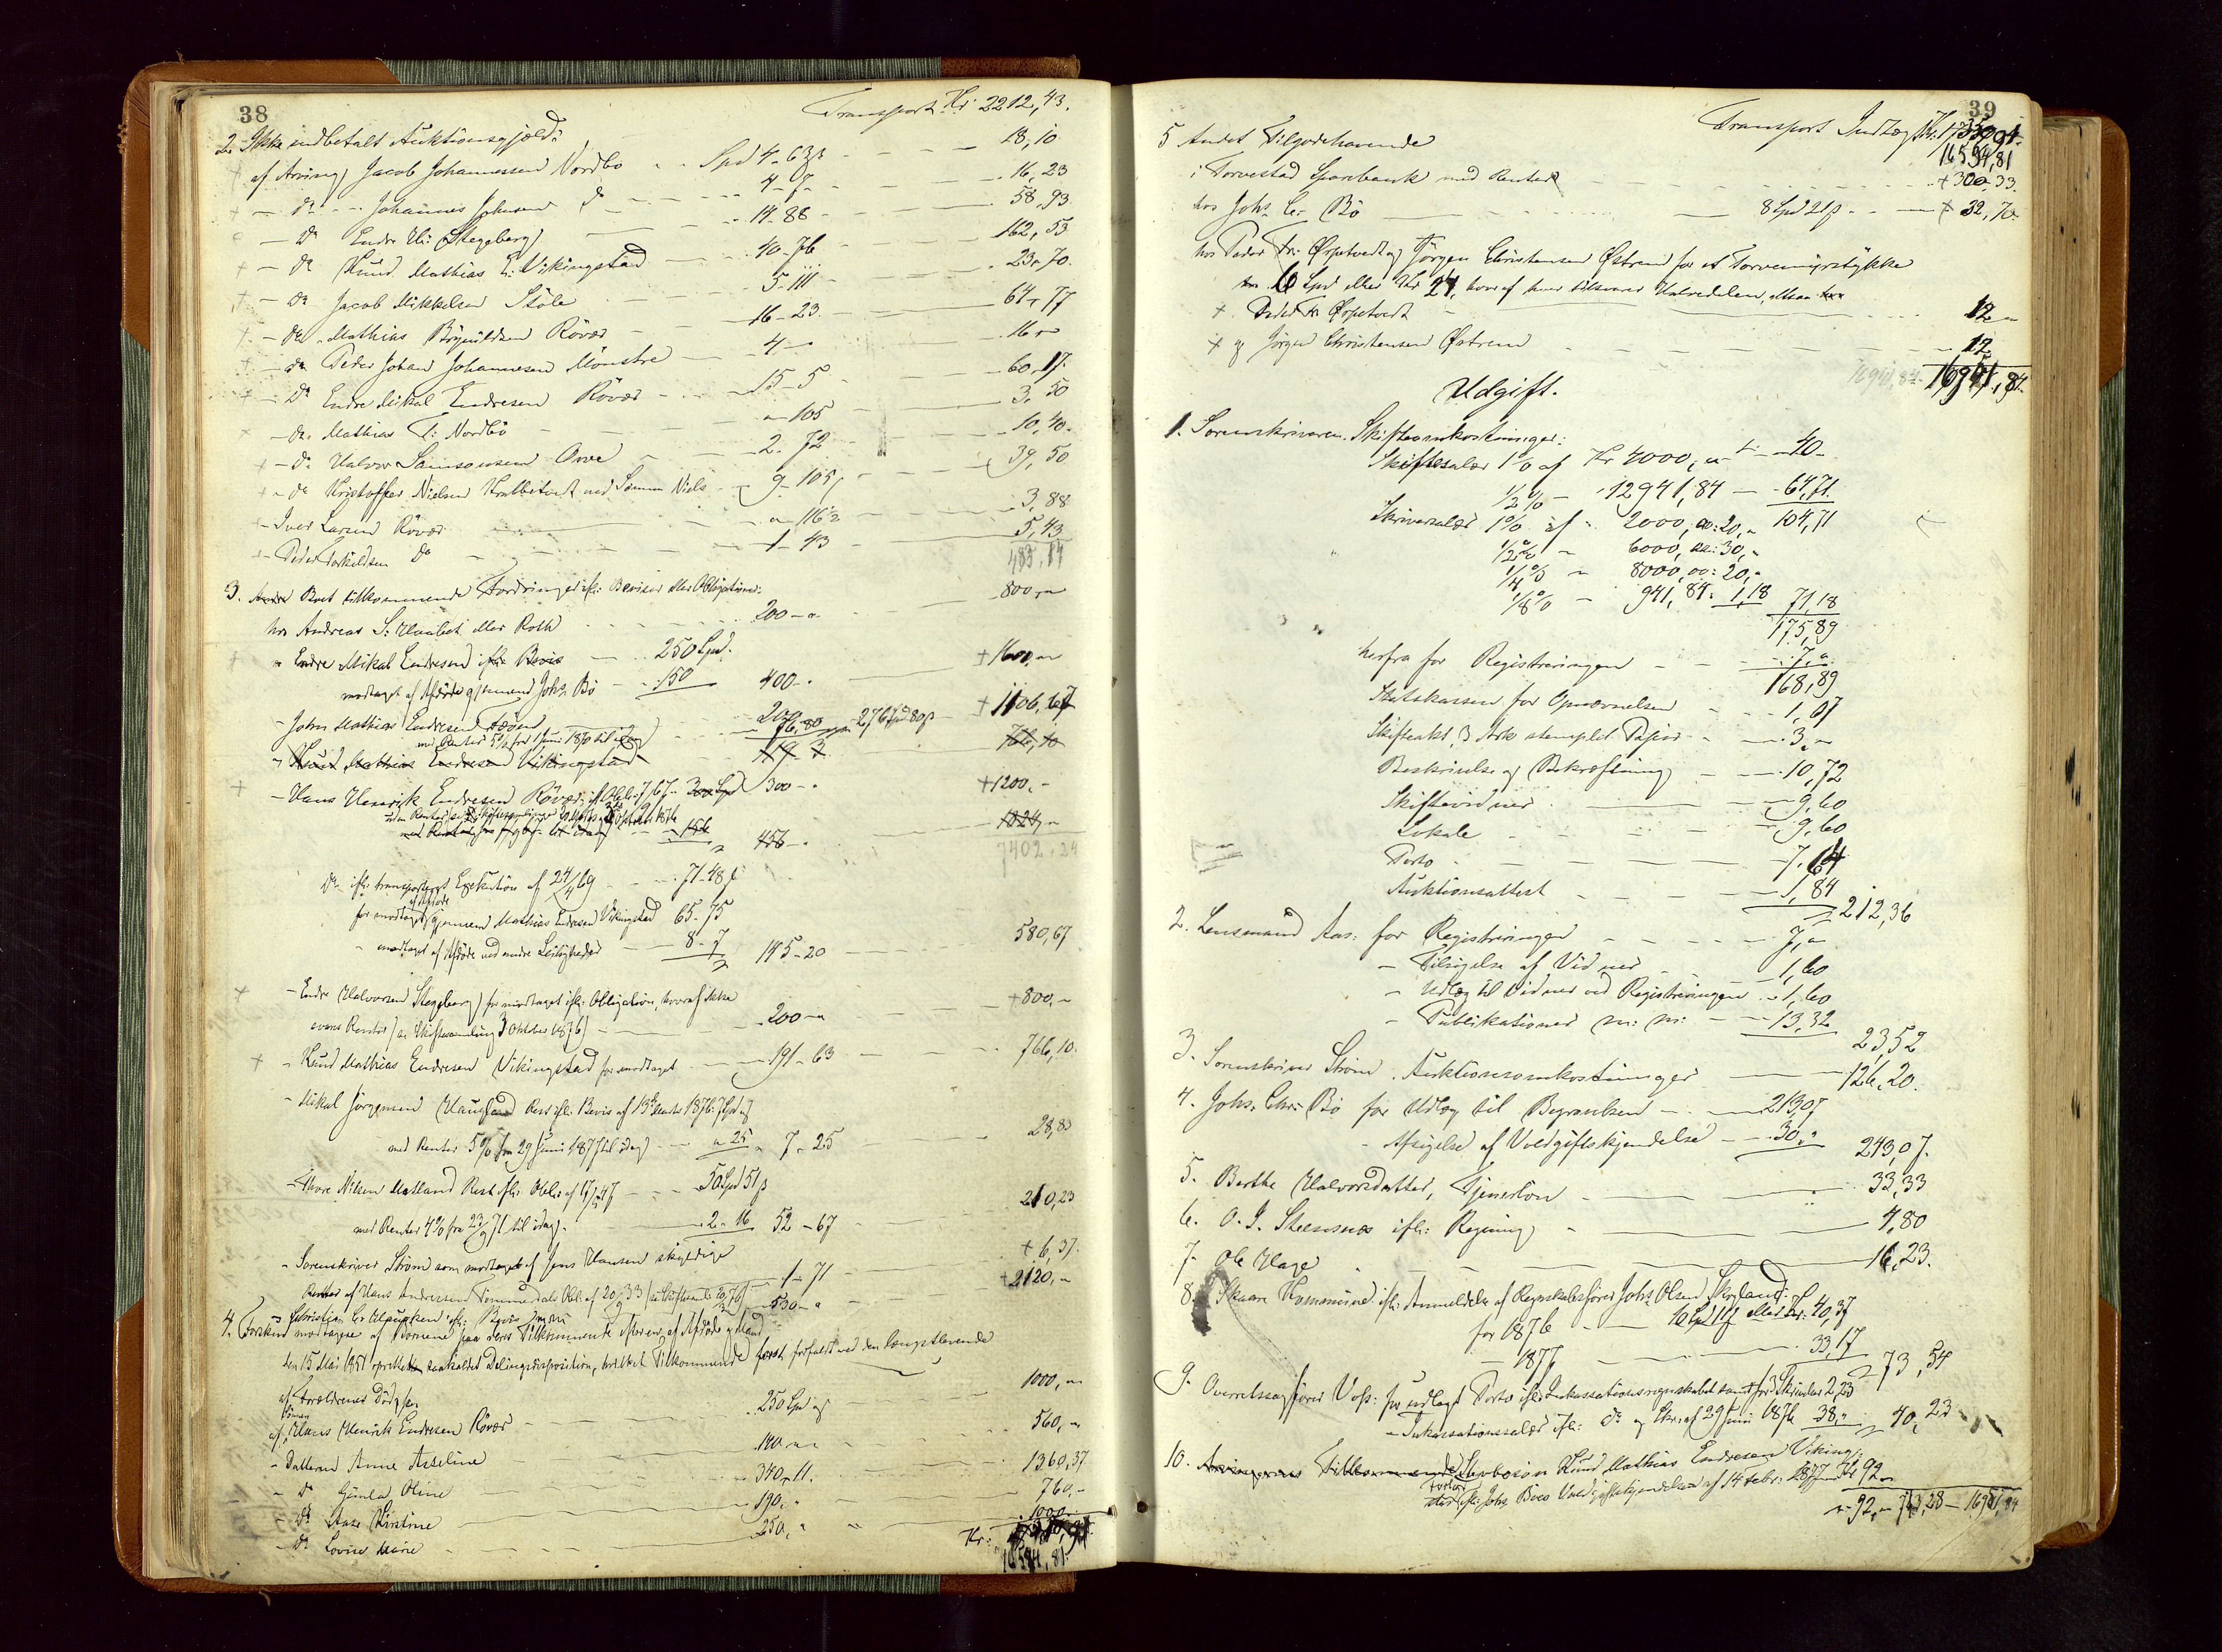 38
Transport Kr: 2212,43.
2. Ikke indbetalt Auktionsgjæld:
+ af Arving Jacob Johannessen Nordbö - - Spd 4-63 ß - - - - 18,10
+ - Do - - Johannes Johnsen - - - 4-7- - - - 16,23
- Do Endre H: Stegeberg - - 14-88 - - 58,93
+ - do Knud Mathias E: Vikingstad - - 40-76 - - 162,53
+ - Do Jacob Mikkelsen Støle - - 5-111 - - 23,70.
+ - do Mathias Brynildsen Røvær - 16-23. - - 64,77
+ - do Peder Johan Johannesen Mönstre - 4- - - 16,-
+ - Do Endre Mikal Endresen Røvær - - 15-5 - - 60,17.
- do. Mathias T: Nordbö - - 105 - - 3,50
+ - do Halvor Samsonsen Øvre - - 2-72 - - 10,40.
+ - do Kristoffer Nielsen ved Sønnen Niels - 9-105 - - 39,50
- Iver Larsen Røvær - - 116 ½ - - 3,88
+ - Peder Torkildsen do - - 1-43 - - 5,43
483,17
3. Boet tilkommende Fordringer ifl: Beviser eller Obligationer:
hos Andreas S: Haabet eller Roth - - 200- - - 800,-
+ " Endre Mikal Endresen ifl: Bevis - - 250 Spd.
modtaget af Afdøde gjennem Johs Bö - - 150 400-. + 1600,-
- John Mathias Endresen - - 200 - 276 Spd 80 ß + 1106,67
med Renter 5% fra 1 Juni 1870 til idag - 76,80
" Knud Mathias Endresen Vikingstad 119 3 766,10
+ - Hans Henrik Endresen Røvær, ifl Obl: 7/67. 300 Spd 300-. + 1200,-
156 456-. 1824,-
7402,24
Do ifl: transporteret Exekution af 24/4 69 - - 71-48 ß
for modtaget af Afdøde gjennem Mathias Endresen Vikingstad 65-75
- modtaget af Afdøde ved andre Leiligheder - - 8-7 145-20 - - 580,67
+ - Endre Halvorsen Stegeberg for modtaget ifl: Obligation, hvoraf ikke
svares Renter (se Skiftesamling 3 Oktober 1876) - - 200- + 800,-
+ - Knud Mathias Endresen Vikingstad for modtaget - - 191-63 - - 766,10.
- Mikal Jörgensen Haugland Rest ifl: Bevis af 13 Marts 1876: 7 Spd og
med Renter 5% fra 29 Juni 1877 til idag - - " 25 " 7-25 - - 28,83
- Thore Nilsen Matland Rest ifl: Obl: af 17/ 47 - - 50 Spd 51 ß
med Renter 4% fra 23/9 71 til idag. - 2-16 52-67 - 210,23
- Sorenskriver Strøm som modtaget af Jens Hansen skyldige + 6,37.
Renter af Hans Andreassen Sømme dals Obl: af 20/9 33 - 1-71
- Christian Chr ifl: Bevis - 530- + 2120,-
4. Forskud modtagne af Børnene paa deres Tilkommende efter en af Afdøde og Mand
den 15 Mai 1851 oprettet saakaldet Delingsdisposition, hvilket Tilkommende først forfaldt ved den længstlevende
af Forældrenes Död, fra
af Sönnen Hans Henrik Endresen Røvær - - 250 Spd og 1000,-
- Datteren Anne Asseline - - 140 - 560,-
- Do Gunla Oline - - 340-11. - 1360,37
- Do Aase Kirstine - - 190,- - 760,-
- Do Lovise Marie - - 250, - 1000,-
Kr: 16594,81.
39
Transport Indtægt Kr: 17350,91.
16594,81
5 Andet Tilgodehavende
i Torvestad Sparebank med Renter - - - + 300,33.
hos Johs Chr: Bö - - 8 Spd 21 ß - - + 32,70.
hos Peder Fr: Ørpetvedt og Jörgen Christensen Østrem for et Torvemyrstykke
6 Spd eller Kr 24, hvoraf hver tilsvarer Halvdelen, altsaa
+ Peder Fr Ørpetvedt - - - 12-
+ og Jörgen Christensen Østrem - - - 12
16941,84 16941,84.
Udgift.
1. Sorenskriveren. Skifteomkostninger:
Skiftesalær 1% af Kr 4000,- - 40-
½ % - 12941,84 - - 64,71
Skriversalær 1% af - 2000, oo: 20,- 104,71
½ % - 6000, oo: 30,-
¼ % - 8000, oo: 20,-
⅛ % - 941,84: 1,18 71,18
175,89
herfra for Registreringen - - - 7,-
168,89
Statskassen for Opnævnelsen - - - 1,67
Skifteakt, 3 Ark stemplet Papir - - - 3,-
Beskrivelse og Bekræftning - - - 10,72
Skiftevidner - - 9,60
Lokale - - - 9,60
Porto - - - 7,64
Auktionsattest - - - 1,84
212,36
2. Lensmand Aas: for Registreringen - - - 7,-
- Tilsigelse af Vidner - - 1,60
- Udlæg til Vidner ved Registreringen - 1,60
- Publikationer m: m: - - 13,32
23,52
3. Sorenskriver Strøm. Auktionsomkostninger - - 126,20.
4. Johs. Chr: Bö for Udlæg til Begravelsen - - 213,07
- Afsigelse af Voldgiftskjendelse - - 30,- 243,07.
5. Berthe Halvorsdatter, Tjenerløn - - 33,33
6. O. I. Steensnæs ifl: Regning - - 4,80
7. Ole Hage - - 16,23.
8. Skaare Kommune ifl: Anmeldelse af Regnskabsfører Johs Olsen Skogland:
for 1876 - - 10 Spd 11 ß eller Kr: 40,37
- 1877 - - - 33,17
73,54
9. Overretssagfører Voss: for udlagt Porto ifl: Inkassationsregnskabet samt for Skrivelser 2,23
- Inkassationssalær ifl: do og Skr: af 29 Juni 1876 38,- 40,23
10. Arvingernes Tilkommende Stervbosön Knud Mathias Endresen Viking-
stad ifl: Johs Böes Voldgiftskjendelse af 14 febr: 1877 Kr 92,-
92,- 743,28 - 16941,84